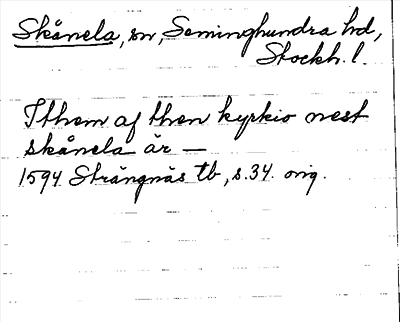 Skånela, sn, Seminghundra hd,
Stockh. l.
Ithem af then kyrkio nest
skånela är —
1594 Strängnäs tb, s. 34. orig.